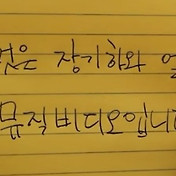 것은 장기하와 얼
뮤직비디오입니다